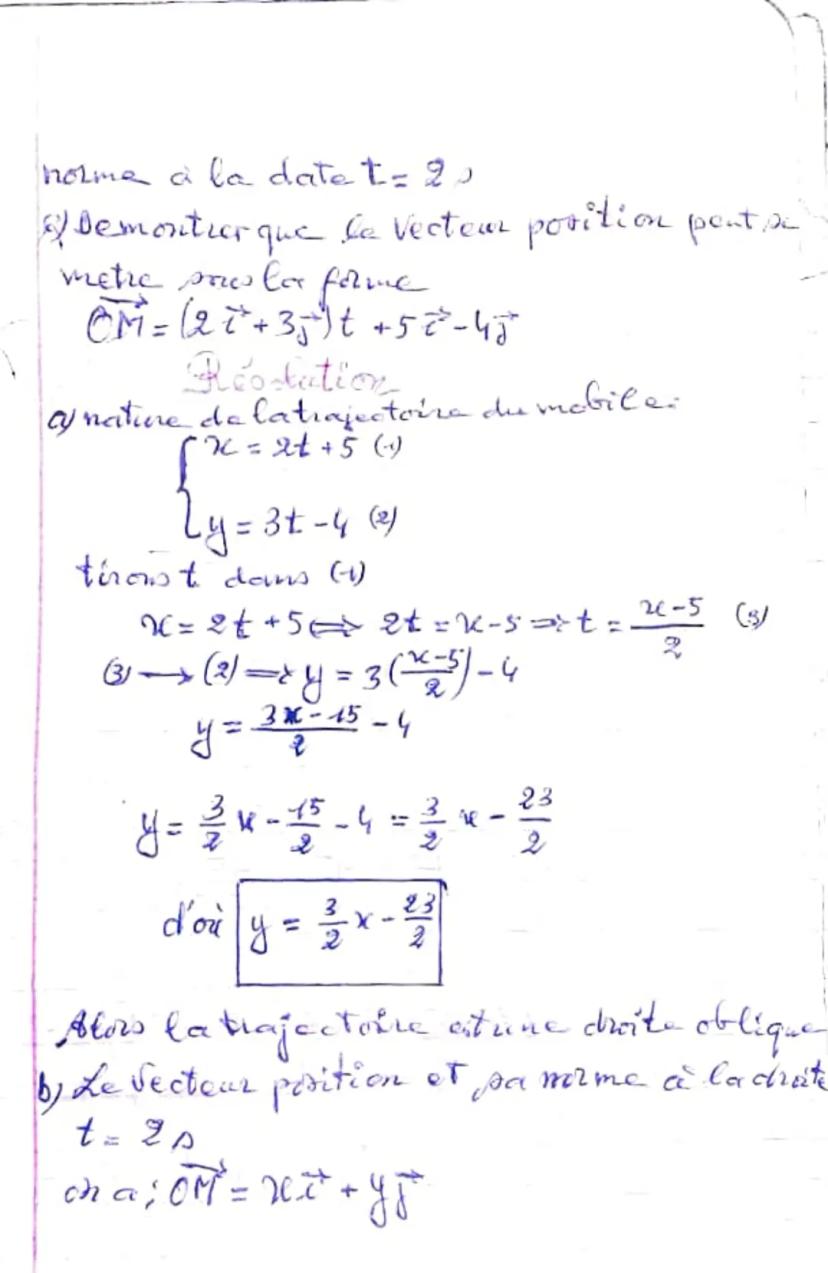 norme à la date t = 2 s
c) Demontrer que le Vecteur position peut se
metre sous la forme
OM⃗ = (2i⃗ + 3j⃗)t + 5i⃗ - 4j⃗
Résolution
a) nature de la trajectoire du mobile.
{ x = 2t + 5 (1)
y = 3t - 4 (2)
tirons t dans (1)
x = 2t + 5 ⇔ 2t = x - 5 ⇒ t = (x-5)/2 (3)
(3) → (2) ⇒ y = 3((x-5)/2) - 4
y = (3x - 15)/2 - 4
y = 3/2 x - 15/2 - 4 = 3/2 x - 23/2
d'où y = 3/2 x - 23/2
Alors la trajectoire est une droite oblique
b) Le Vecteur position et sa norme à la droite
t = 2 s
on a ; OM⃗ = xi⃗ + yj⃗